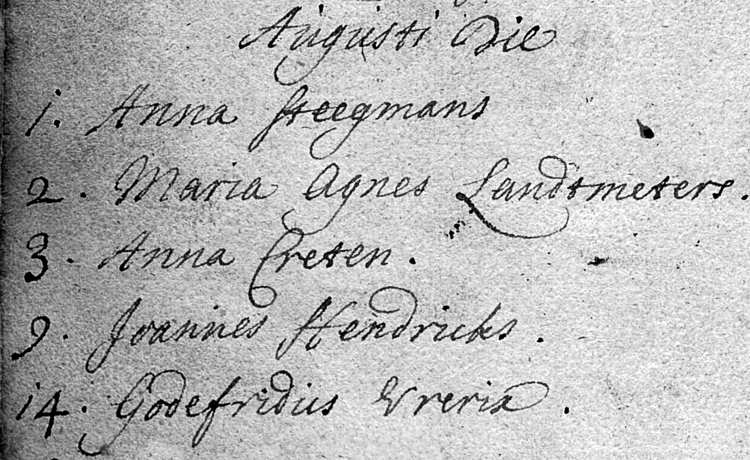 Augusti Die
1. Anna Steegmans
2. Maria Agnes Landtmeters.
3. Anna Creten.
9. Joannes Hendricks.
14. Godefridus